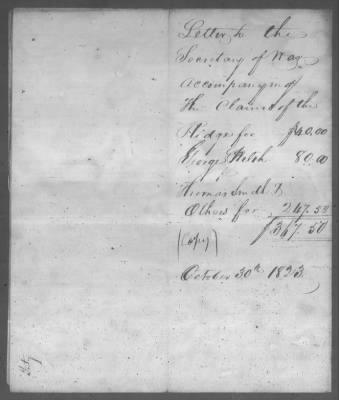 Letter to the
Secretary of War
accompanying
The Claims of the
Ridge for $40.00
George Welsh 80.00
Thomas Smith &
Others for 247.50
$367.50
(Copy)
October 30th 1823